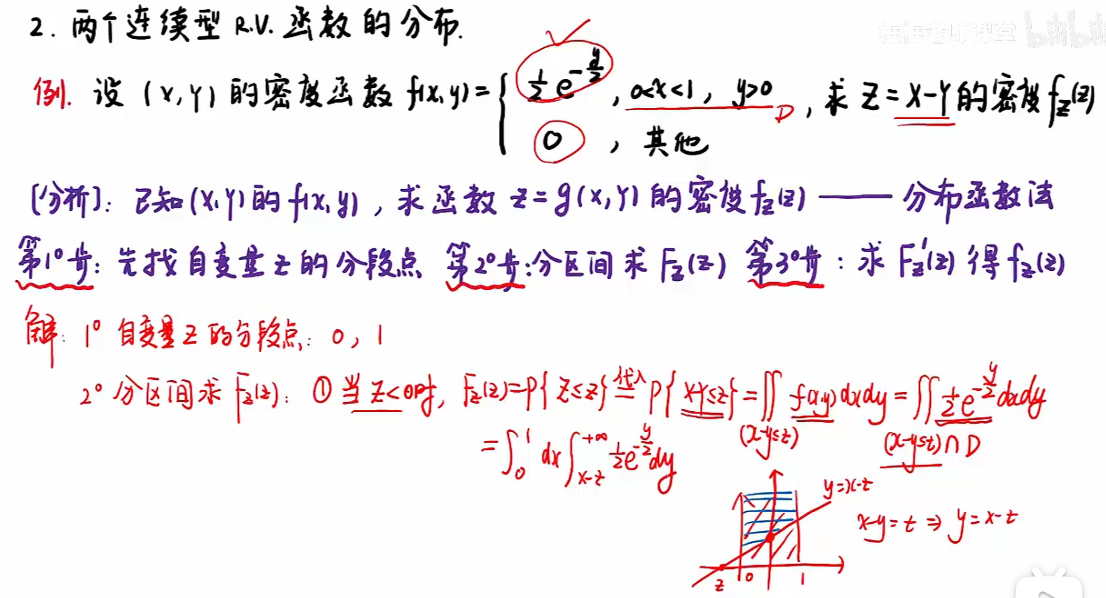 2. 两个连续型 R.V. 函数的分布.
bilibili
例. 设 (X,Y) 的密度函数 f(x,y)= { ½ e^{-y/2} , 0<x<1, y>0 D , 求 Z=X-Y 的密度 f_Z(z)
0 , 其他
[分析]: 已知(X,Y)的 f(x,y), 求函数 z=g(x,Y) 的密度 f_Z(z) —— 分布函数法
第1°步: 先找自变量 z 的分段点 第2°步: 分区间求 F_Z(z) 第3°步: 求 F_Z'(z) 得 f_Z(z)
解: 1° 自变量 z 的分段点: 0, 1
2° 分区间求 F_Z(z): ① 当 z<0时, F_Z(z)=P{Z≤z} 代入= P{X-Y≤z} = ∬ f(x,y)dxdy = ∬ ½e^{-y/2}dxdy
(x-y≤z) (x-y≤z)∩D
= ∫₀¹ dx ∫_{x-z}^{+∞} ½e^{-y/2}dy
y=x-z
x-y=z ⇒ y=x-z
z 0 1